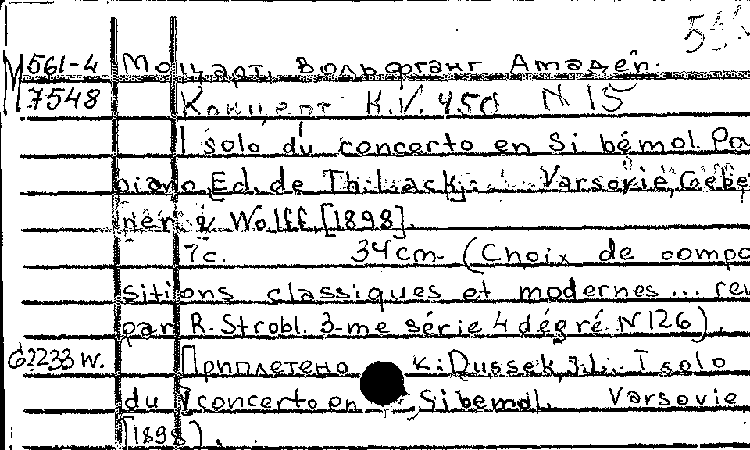 М561-4 Моцарт, Вольфганг Амадей.
7548 Концерт K.V. 450 N 15
I solo du concerto en Si bémol. Po
piano, Ed. de Varsovie, Gebe
ner & Wolff, [1898].
7c. 34cm (Choix de compo
sitions classiques et modernes... rev
par R. Strobl. 3-me série 4 dégré. N 126).
62233 w. Приплетено к: Dussek, J.L. I solo
du I concerto en Si bemol. Varsovie
[1898].